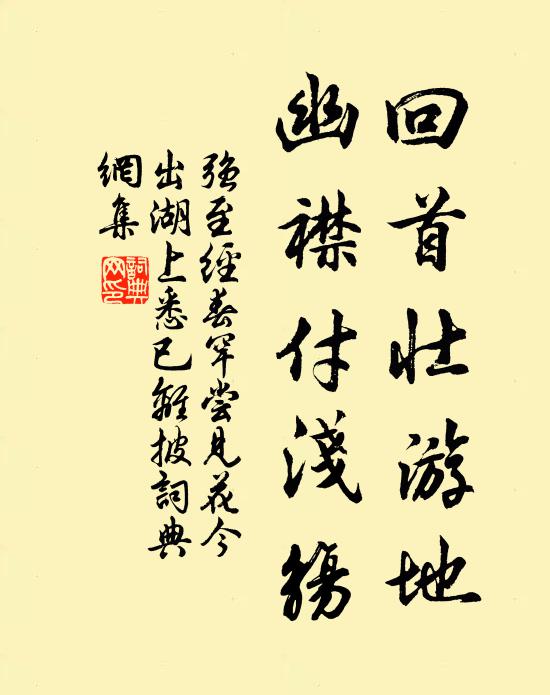 回首壮游地
幽襟付淺觴
强至經春罕嘗見花今
出湖上悉已離披詞典
網集
詞典网印